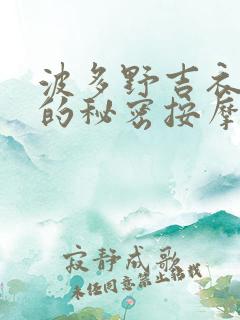 波多野吉衣
的秘密按摩
寂静成歌
未经同意禁止转载